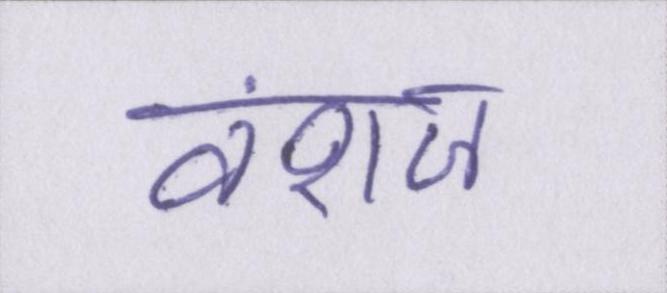 वंशज